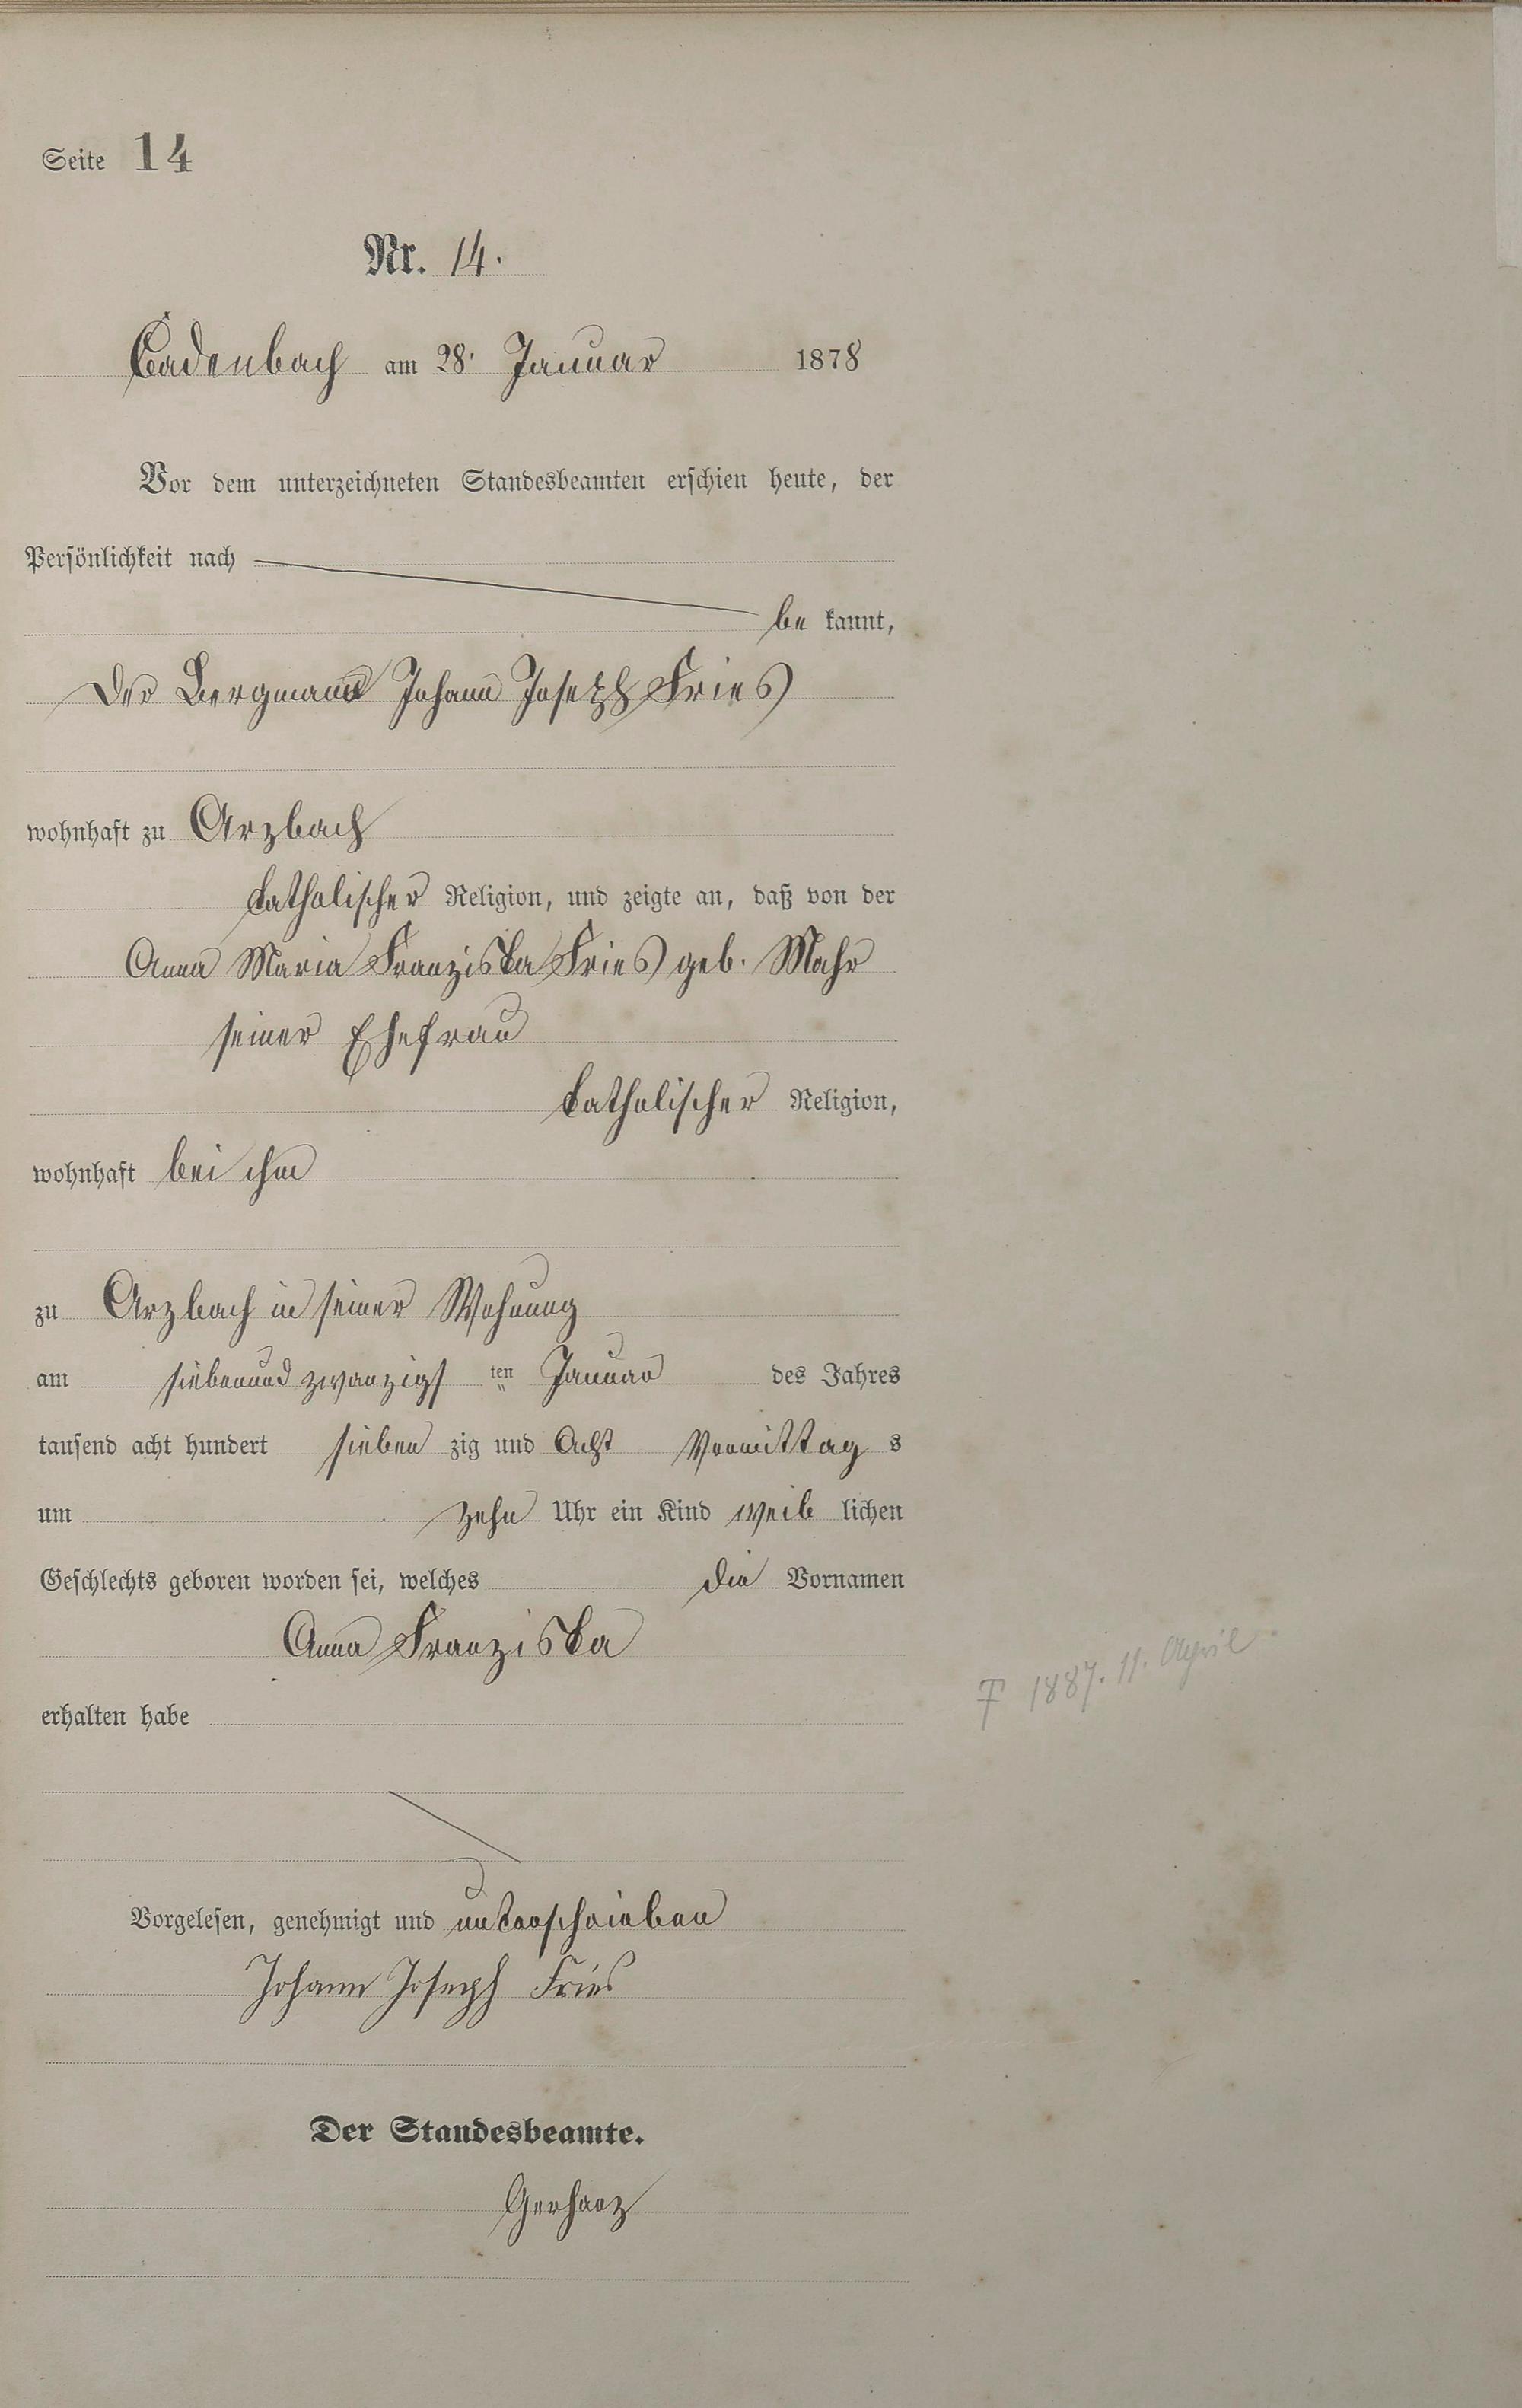 Seite 14
Nr. 14.
Cadenbach am 28. Januar 1878
Vor dem unterzeichneten Standesbeamten erschien heute, der
Persönlichkeit nach
be kannt,
der Bergmann Johann Joseph Fries
wohnhaft zu Arzbach
katholischer Religion, und zeigte an, daß von der
Anna Maria Franziska Fries geb. Mohr
seiner Ehefrau
katholischer Religion,
wohnhaft bei ihm
zu Arzbach in seiner Wohnung
am siebenund zwanzigs ten Januar des Jahres
tausend acht hundert sieben zig und Acht Vormittag s
um zehn Uhr ein Kind weib lichen
Geschlechts geboren worden sei, welches die Vornamen
Anna Franziska
erhalten habe
† 1887. 11. April
Vorgelesen, genehmigt und unterschrieben
Johann Joseph Fries
Der Standesbeamte.
Gerharz